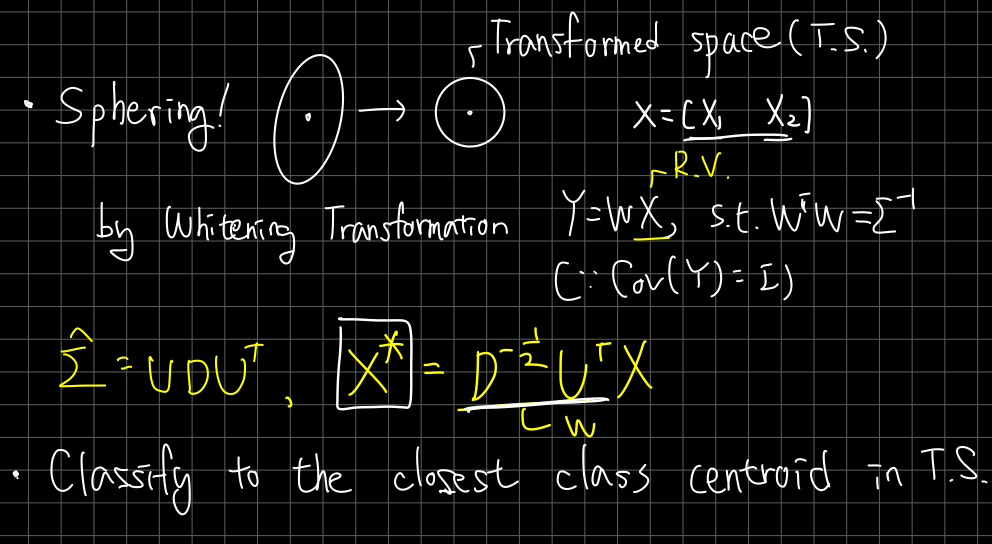 Transformed space (T.S.)
• Sphering! →
X = [X₁ X₂]
R.V.
by Whitening Transformation Y = WX, s.t. WᵀW = Σ⁻¹
(∵ Cov(Y) = I)
Σ̂ = UDUᵀ, X* = D^{-1/2} Uᵀ X
W
• Classify to the closest class centroid in T.S.